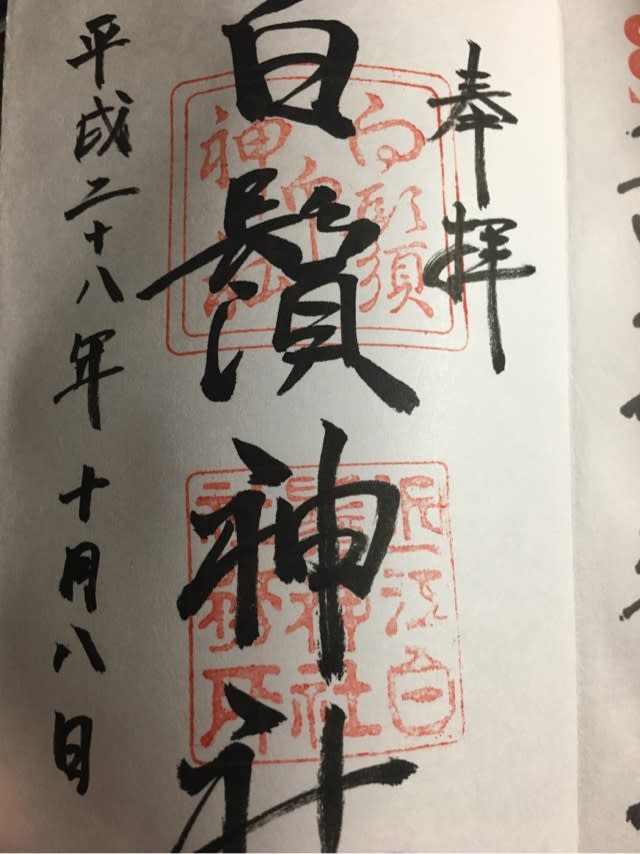 奉拝
白鬚神社
平成二十八年十月八日
白鬚
神社
近江白
鬚神社
社務所